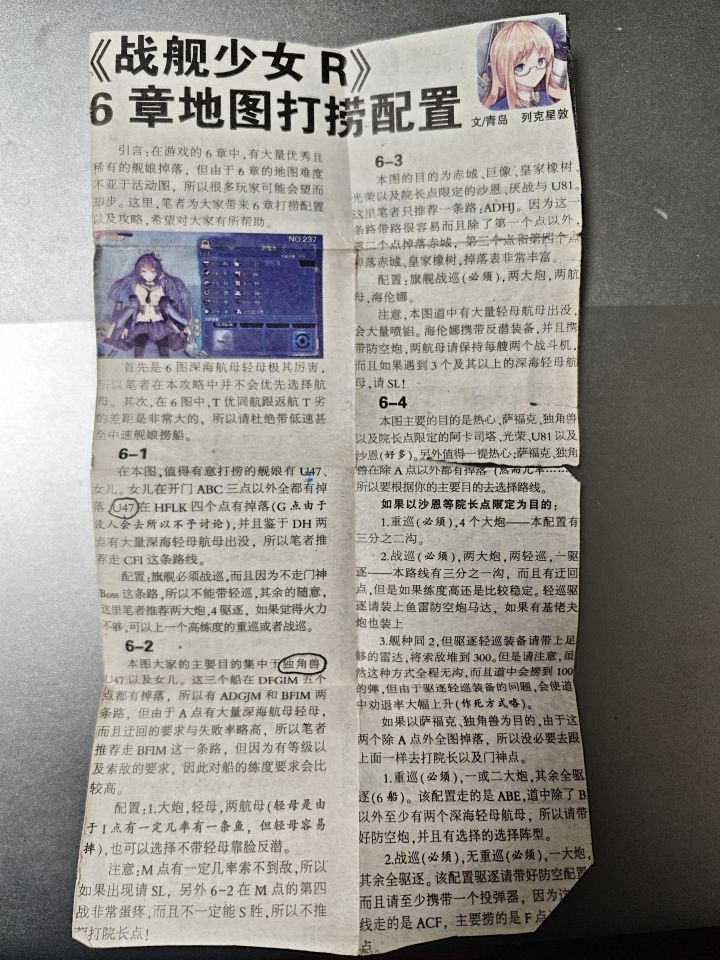 《战舰少女 R》
6 章地图打捞配置
文/青岛 列克星敦
引言:在游戏的 6 章中,有大量优秀且
稀有的舰娘掉落，但由于 6 章的地图难度
不亚于活动图，所以很多玩家可能会望而
却步。这里,笔者为大家带来 6 章打捞配置
以及攻略,希望对大家有所帮助。
NO.237
首先是 6 图深海航母轻母极其厉害，
所以笔者在本攻略中并不会优先选择航
母。其次,在 6 图中,T 优同航跟返航 T 劣
的差距是非常大的，所以请杜绝带低速甚
至中速舰娘捞船。
6-1
在本图,值得有意打捞的舰娘有 U47、
女儿。女儿在开门 ABC 三点以外全都有掉
落,U47 在 HFLK 四个点有掉落(G 点由于
没人会去所以不予讨论),并且鉴于 DH 两
点有大量深海轻母航母出没，所以笔者推
荐走 CFI 这条路线。
配置:旗舰必须战巡,而且因为不走门神
Boss 这条路,所以不能带轻巡,其余的随意,
这里笔者推荐两大炮,4 驱逐，如果觉得火力
不够,可以上一个高练度的重巡或者战巡。
6-2
本图大家的主要目的集中于独角兽
U47 以及女儿。这三个船在 DFGIM 五个
点都有掉落，所以有 ADGJM 和 BFIM 两
条路，但由于 A 点有大量深海航母轻母，
而且迂回的要求与失败率略高，所以笔者
推荐走 BFIM 这一条路，但因为有等级以
及索敌的要求，因此对船的练度要求会比
较高。
配置:1.大炮,轻母,两航母(轻母是由
于 I 点有一定几率有一条鱼，但轻母容易
摔),也可以选择不带轻母靠脸反潜。
注意:M 点有一定几率索不到敌,所以
如果出现请 SL，另外 6-2 在 M 点的第四
战非常蛋疼,而且不一定能 S 胜,所以不推
荐打院长点!
6-3
本图的目的为赤城,巨像,皇家橡树,
光荣以及院长点限定的沙恩、厌战与 U81。
这里笔者只推荐一条路:ADHJ。因为这一
条路带路很容易而且除了第一个点以外,
第二个点掉落赤城，第三个点和第四个点
掉落赤城,皇家橡树,掉落表非常丰富。
配置:旗舰战巡(必须),两大炮,两航
母,海伦娜。
注意，本图道中有大量轻母航母出没,
会大量喷铝。海伦娜携带反潜装备,并且携
带防空炮,两航母请保持每艘两个战斗机,
而且如果遇到 3 个及其以上的深海轻母航
母,请 SL!
6-4
本图主要的目的是热心、萨福克、独角兽
以及院长点限定的阿卡司塔、光荣、U81 以及
沙恩(好多)。另外值得一提热心;萨福克、独角
兽在除 A 点以外都有掉落
所以要根据你的主要目的去选择路线。
如果以沙恩等院长点限定为目的:
1.重巡(必须),4 个大炮——本配置有
三分之二沟。
2.战巡(必须),两大炮,两轻巡,一驱
逐——本路线有三分之一沟，而且有迂回
点,但是如果练度高还是比较稳定。轻巡驱
逐请装上鱼雷防空炮马达，如果有基佬夫
炮也装上
3.舰种同 2,但驱逐轻巡装备请带上足
够的雷达,将索敌堆到 300。但是请注意,虽
然这种方式全程无沟,而且道中会捞到 100
的弹,但由于驱逐轻巡装备的问题,会使道
中劝退率大幅上升(作死方式咯)。
如果以萨福克、独角兽为目的,由于这
两个除 A 点外全图掉落，所以没必要去跟
上面一样去打院长以及门神点。
1.重巡(必须),一或二大炮,其余全驱
逐(6 船)。该配置走的是 ABE,道中除了 B
以外至少有两个深海轻母航母，所以请带
好防空炮,并且有选择的选择阵型。
2.战巡(必须),无重巡(必须),一大炮,
其余全驱逐。该配置驱逐请带好防空配置
而且请至少携带一个投弹器，因为这
线走的是 ACF，主要捞的是 F 点
点。